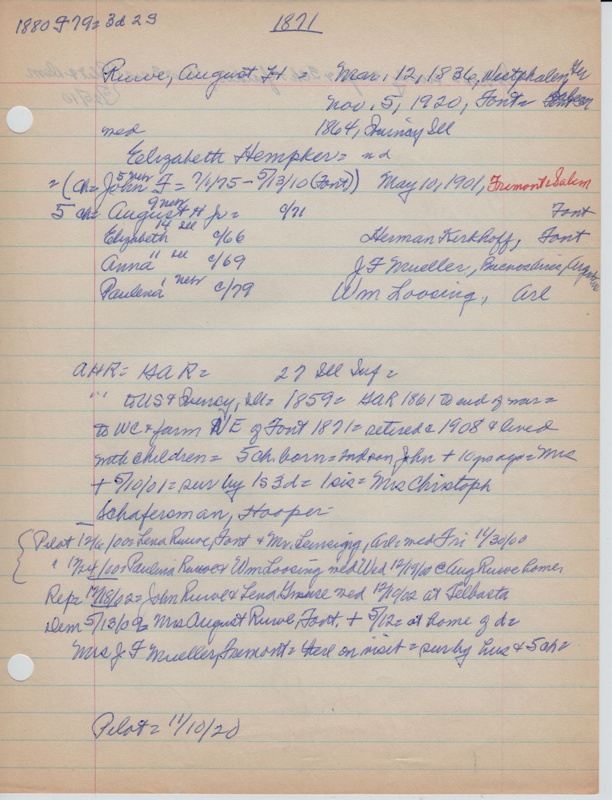 1880 F 79= 3d 2S
1871
Ruwe, August H = Mar. 12, 1836, Westphalen, Ger
Nov. 5, 1920, Font= Salem
med 1864, Quincy Ill
Elizabeth Hempker= nd
= (ch= John F = 7/1/75 - 5/13/10 (Font)) May 10, 1901, Fremont= Salem
5 Nebr
5 ch= August H Jr = c/71 Font
9 Nebr
Elizabeth c/66 Herman Kerkhoff, Font
14 Ill
Anna " Ill c/69 J F Mueller, Buenos Aires, Argentina
Paulena 1 Nebr c/79 Wm Loosing, Arl
AHR= GAR= 27 Ill Inf=
" to US & Quincy, Ill= 1859= GAR 1861 to end of war=
to WC & farm NE of Font 1871= retired c 1908 & lived
with children= 5ch. born= son John + 10 yrs ago= Mrs
+ 5/10/01= sur by 1S 3d= 1 sis= Mrs Christoph
Schafersman, Hooper=
Pilot 12/6/00= Lena Ruwe, Font & Mr. , Arl= med Fri 11/30/00
" 12/24/00= Paulina Ruwe & Wm Loosing med Wed 12/19/00 c Aug Ruwe home=
Rep= 12/18/02= John Ruwe & Lena Grause med 12/10/02 at
Dem 5/13/09= Mrs August Ruwe, Font. + 5/12= at home of d=
Mrs J F Mueller, Fremont= on visit= sur by hus & 5 ch=
Pilot= 11/10/20